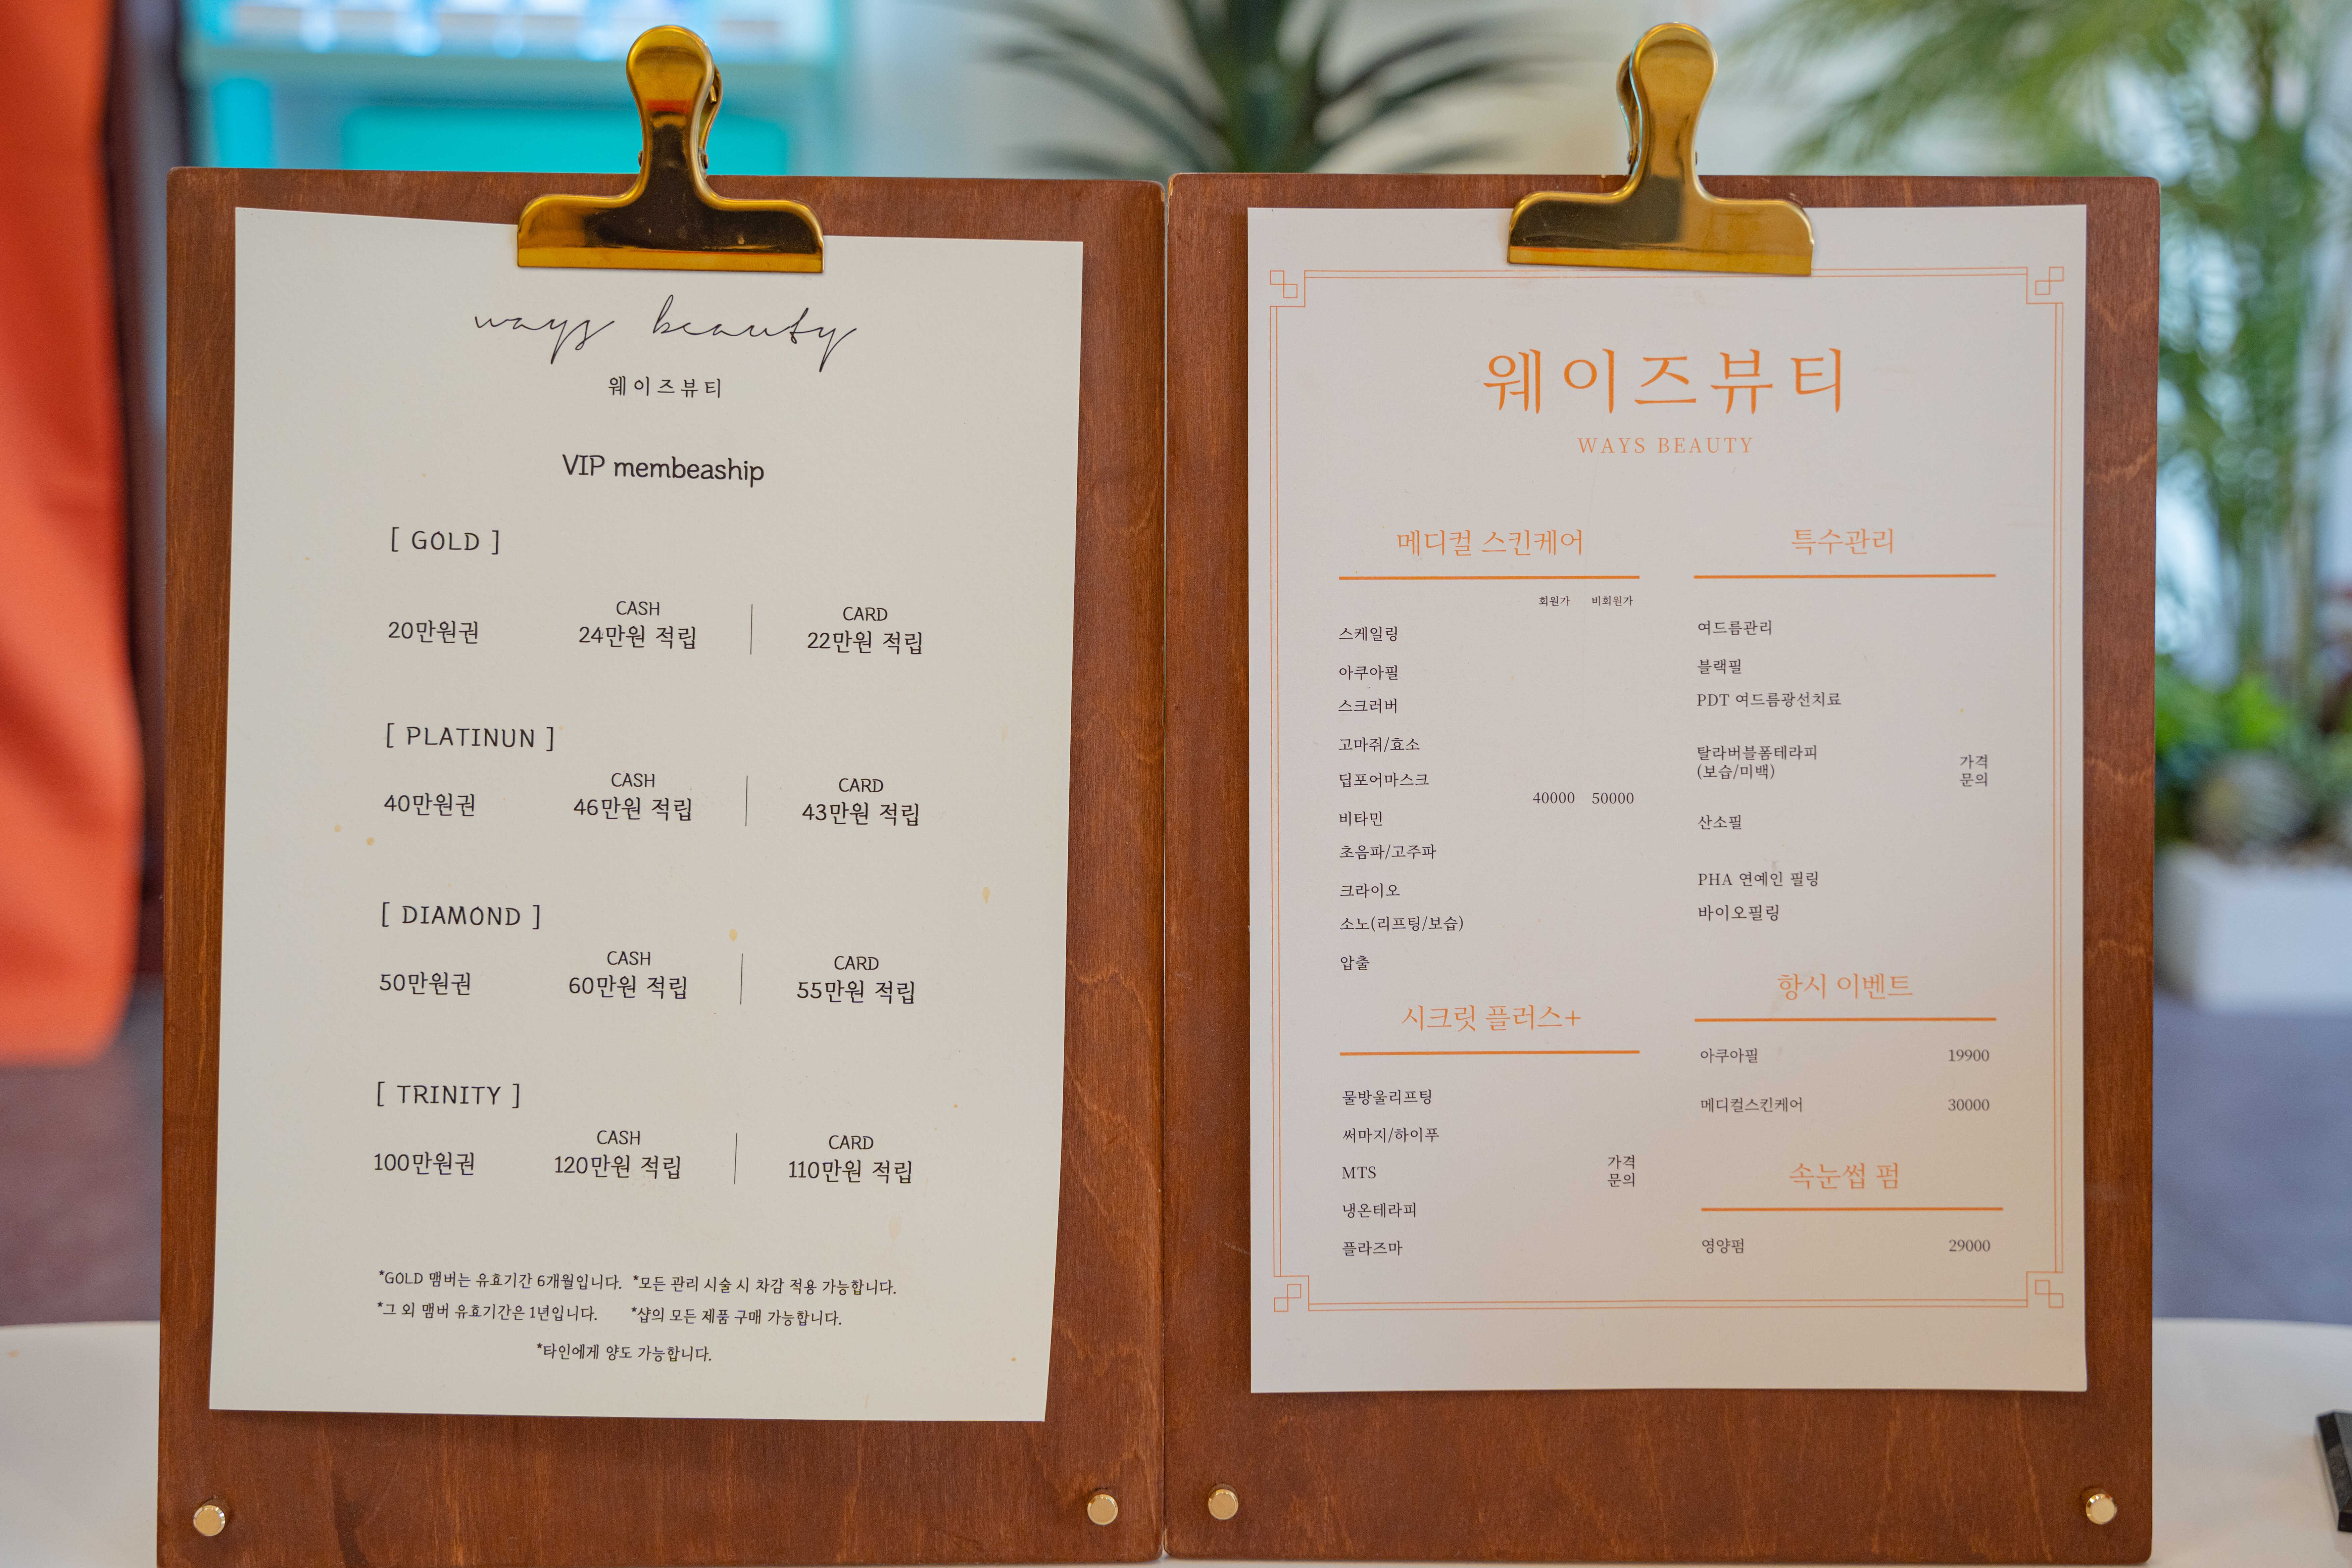 ways beauty
웨이즈뷰티
VIP membeaship
[ GOLD ]
CASH CARD
20만원권 24만원 적립 22만원 적립
[ PLATINUN ]
CASH CARD
40만원권 46만원 적립 43만원 적립
[ DIAMOND ]
CASH CARD
50만원권 60만원 적립 55만원 적립
[ TRINITY ]
CASH CARD
100만원권 120만원 적립 110만원 적립
*GOLD 맴버는 유효기간 6개월입니다. *모든 관리 시술 시 차감 적용 가능합니다.
*그 외 맴버 유효기간은 1년입니다. *샵의 모든 제품 구매 가능합니다.
*타인에게 양도 가능합니다.
웨이즈뷰티
WAYS BEAUTY
메디컬 스킨케어
회원가 비회원가
스케일링
아쿠아필
스크러버
고마쥐/효소
딥포어마스크
40000 50000
비타민
초음파/고주파
크라이오
소노(리프팅/보습)
압출
시크릿 플러스+
물방울리프팅
써마지/하이푸
가격
MTS
문의
냉온테라피
플라즈마
특수관리
여드름관리
블랙필
PDT 여드름광선치료
탈라버블폼테라피
(보습/미백)
가격
문의
산소필
PHA 연예인 필링
바이오필링
항시 이벤트
아쿠아필 19900
메디컬스킨케어 30000
속눈썹 펌
영양펌 29000